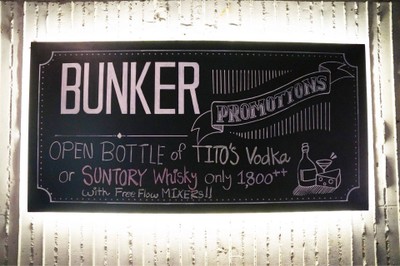 BUNKER
PROMOTIONS
OPEN BOTTLE of TITO'S Vodka
or SUNTORY Whisky only 1,800++
with Free Flow MIXERS!!